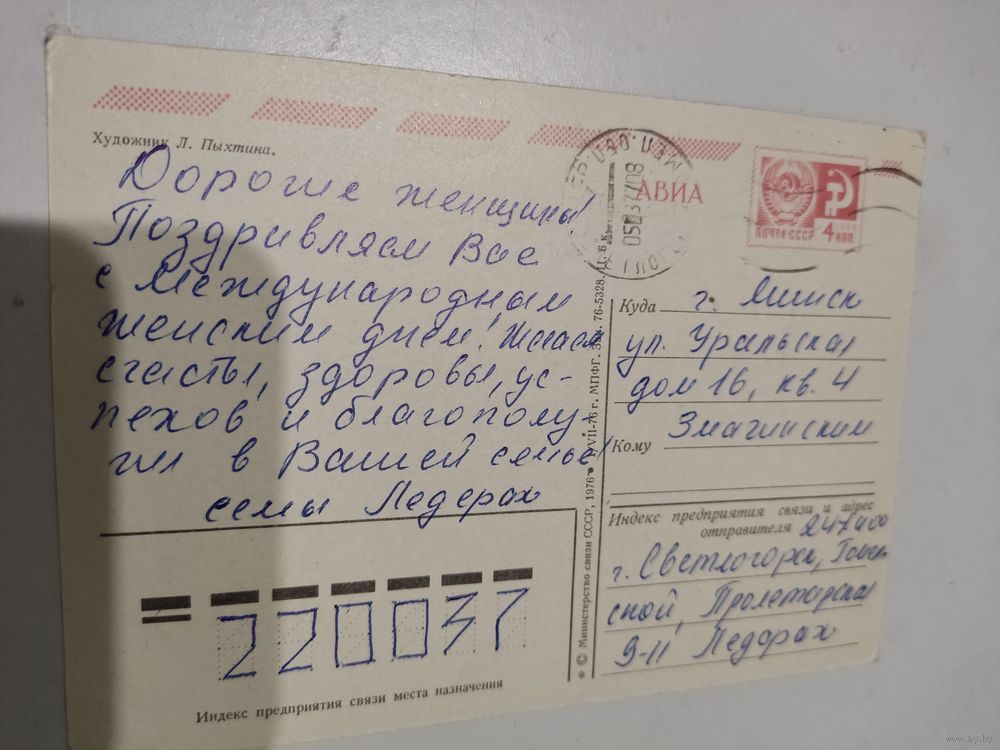 Художник Л. Пыхтина.
Дорогие женщины!
Поздравляем Вас
с Международным
женским днем! Желаем
счастья, здоровья, ус-
пехов и благополу-
чия в Вашей семье!
семья Ледерах
АВИА
ПОЧТА СССР 4 КОП
Куда г. Минск
ул. Уральская
дом 16, кв. 4
Кому Змагинским
Индекс предприятия связи и адрес
отправителя 247400
г. Светлогорск, Гомель
ской, Пролетарская
9-11 Ледерах
220037
Индекс предприятия связи места назначения
* © Министерство связи СССР, 1976 ● 1/VII-76 г. МПФГ. Зак. 76-5328. Ц. 6 к.
www.ay.by